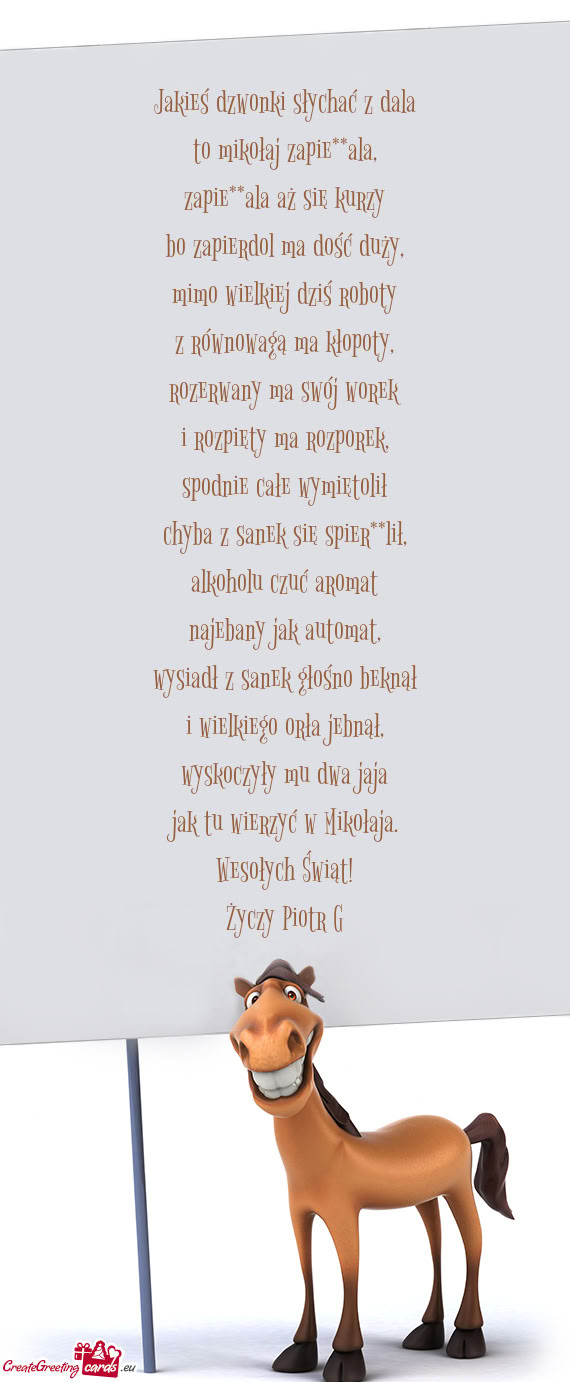 Jakieś dzwonki słychać z dala
to mikołaj zapie**ala,
zapie**ala aż się kurzy
bo zapierdol ma dość duży,
mimo wielkiej dziś roboty
z równowagą ma kłopoty,
rozerwany ma swój worek
i rozpięty ma rozporek,
spodnie całe wymiętolił
chyba z sanek się spier**lił,
alkoholu czuć aromat
najebany jak automat,
wysiadł z sanek głośno beknął
i wielkiego orła jebnął,
wyskoczyły mu dwa jaja
jak tu wierzyć w Mikołaja.
Wesołych Świąt!
Życzy Piotr G
CreateGreeting cards .eu